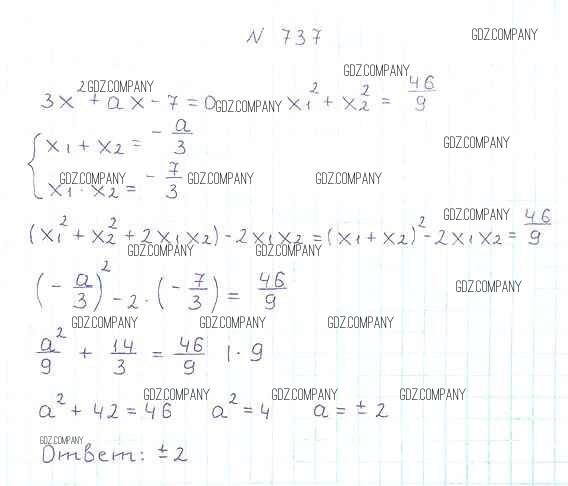 N 737 GDZ.COMPANY
GDZ.COMPANY GDZ.COMPANY
3x² + ax - 7 = 0 GDZ.COMPANY x₁² + x₂² = 46/9
{ x₁ + x₂ = - a/3 GDZ.COMPANY
GDZ.COMPANY GDZ.COMPANY GDZ.COMPANY
x₁ · x₂ = - 7/3
GDZ.COMPANY
(x₁² + x₂² + 2x₁x₂) - 2x₁x₂ = (x₁ + x₂)² - 2x₁x₂ = 46/9
GDZ.COMPANY GDZ.COMPANY
(- a/3)² - 2 · (- 7/3) = 46/9 GDZ.COMPANY
GDZ.COMPANY GDZ.COMPANY GDZ.COMPANY
a²/9 + 14/3 = 46/9 | · 9
GDZ.COMPANY GDZ.COMPANY GDZ.COMPANY
a² + 42 = 46 a² = 4 a = ± 2
GDZ.COMPANY
Ответ: ± 2